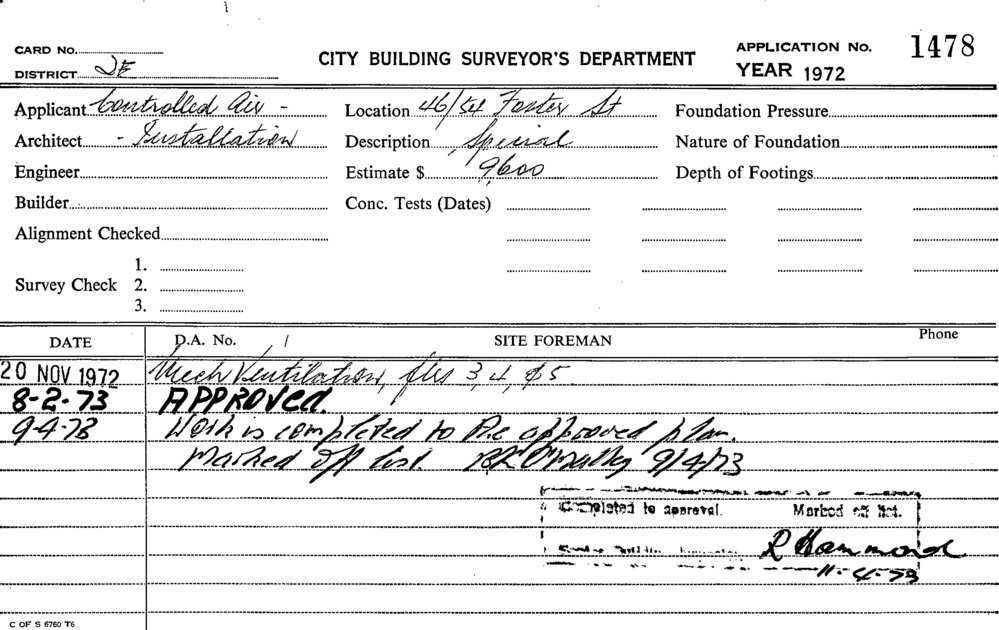 CARD No.
DISTRICT 2E
CITY BUILDING SURVEYOR'S DEPARTMENT
APPLICATION No. 1478
YEAR 1972
Applicant Controlled Air -
Architect - Installation
Engineer
Builder
Alignment Checked
Survey Check 1.
2.
3.
Location 46/54 Foster St
Description Special
Estimate $ 9600
Conc. Tests (Dates)
Foundation Pressure
Nature of Foundation
Depth of Footings
DATE D.A. No. / SITE FOREMAN Phone
20 NOV 1972 Mech Ventilation, flrs 3, 4, & 5
8-2-73 APPROVED.
9-4-73 Work is completed to the approved plan.
Marked off list. 9/4/73
Completed to approval. Marked off list.
R Hammond
11-4-73
C OF S 6760 T6